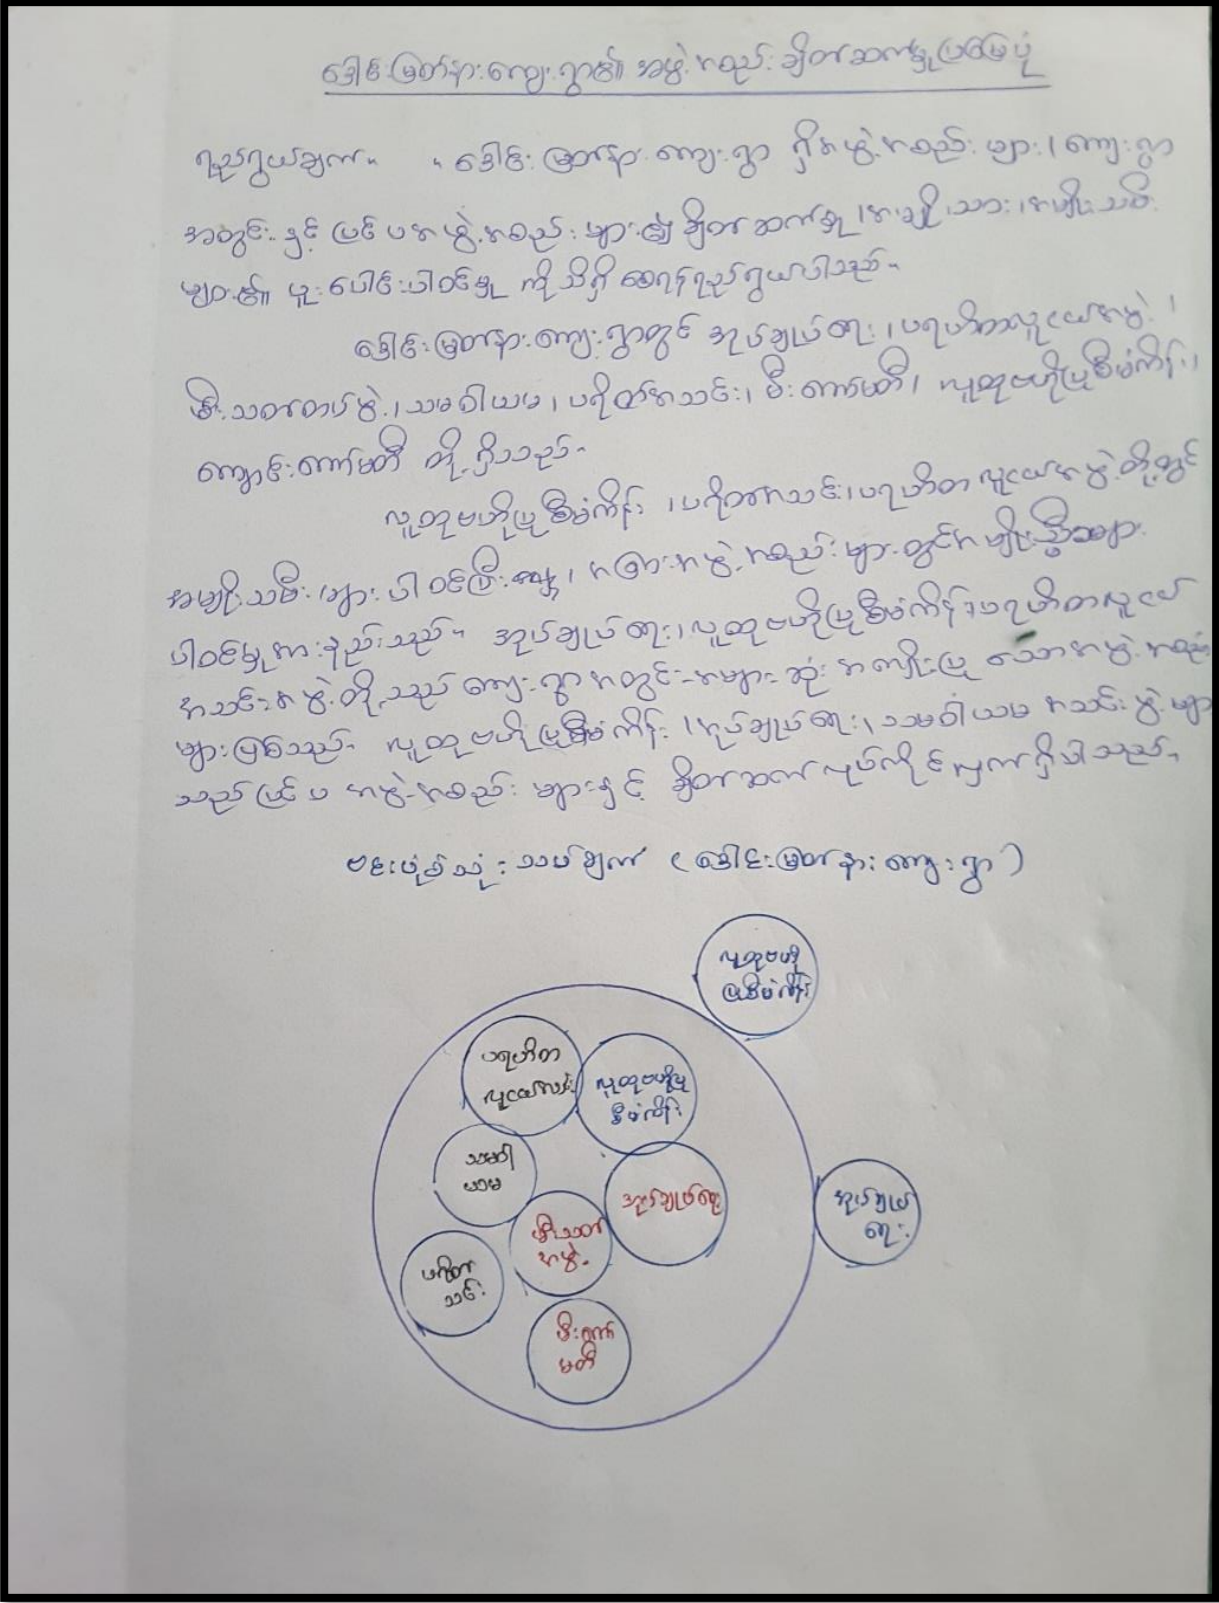 ခေါင်းမြတ်နားကျေးရွာ၏ အဖွဲ့အစည်း ချိတ်ဆက်မှုပြမြေပုံ
ရည်ရွယ်ချက်။ ။ ခေါင်းမြတ်နားကျေးရွာ ရှိအဖွဲ့အစည်းများ၊ ကျေးရွာ
အတွင်းနှင့် ပြင်ပအဖွဲ့အစည်းများ၏ ချိတ်ဆက်မှု၊ အမျိုးသား၊ အမျိုးသမီး
များ၏ ပူးပေါင်းပါဝင်မှု ကိုသိရှိစေရန်ရည်ရွယ်ပါသည်။
ခေါင်းမြတ်နားကျေးရွာတွင် အုပ်ချုပ်ရေး၊ ပရဟိတလူငယ်အဖွဲ့၊
မီးသတ်တပ်ဖွဲ့၊ သမဝါယမ၊ ပရိတ်အသင်း၊ မီးကော်မတီ၊ လူထုဗဟိုပြုစီမံကိန်း၊
ကျောင်းကော်မတီ တို့ရှိသည်။
လူထုဗဟိုပြုစီမံကိန်း၊ ပရိတ်အသင်း၊ ပရဟိတလူငယ်အဖွဲ့တို့တွင်
အမျိုးသမီးများပါဝင်ပြီး၊ အခြားအဖွဲ့အစည်းများတွင် အမျိုးသမီးများ
ပါဝင်မှုအားနည်းသည်။ အုပ်ချုပ်ရေး၊ လူထုဗဟိုပြုစီမံကိန်း၊ ပရဟိတလူငယ်
အသင်းအဖွဲ့တို့သည် ကျေးရွာအတွင်းအများဆုံး အကျိုးပြုသောအဖွဲ့အစည်း
များဖြစ်သည်။ လူထုဗဟိုပြုစီမံကိန်း၊ အုပ်ချုပ်ရေး၊ သမဝါယမ အသင်းဖွဲ့များ
သည်ပြင်ပ အဖွဲ့အစည်းများနှင့် ချိတ်ဆက်လုပ်ကိုင်လျက်ရှိပါသည်။
ဗင်းပုံစံသုံးသပ်ချက် (ခေါင်းမြတ်နားကျေးရွာ)
လူထုဗဟို
ပြုစီမံကိန်း
ပရဟိတ
လူငယ်သင်း
လူထုဗဟိုပြု
စီမံကိန်း
သမဝါ
ယမ
အုပ်ချုပ်ရေး
အုပ်ချုပ်
ရေး
မီးသတ်
အဖွဲ့
ပရိတ်
သင်း
မီးကော်
မတီ